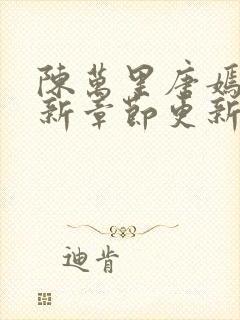 陳萬里唐嫣
新章節更新
迪肯